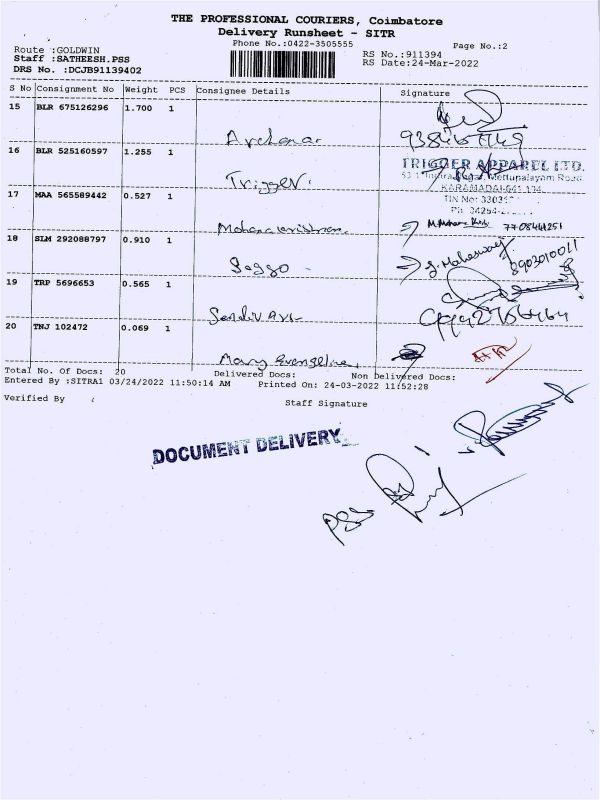 THE PROFESSIONAL COURIERS, Coimbatore
Delivery Runsheet - SITR
Phone No.:0422-3505555
Page No.:2
Route :GOLDWIN
Staff :SATHEESH.PSS
DRS No. :DCJB91139402
RS No.:911394
RS Date:24-Mar-2022
S No Consignment No Weight PCS Consignee Details Signature
15 BLR 675126296 1.700 1
Archana
16 BLR 525160597 1.255 1
TRIGGER APPAREL LTD.
Mettupalayam Road
KARAMADAI-641 104
TIN No: 3303
Ph: 04254-2
Trigger.
17 MAA 565589442 0.527 1
18 SLM 292088797 0.910 1
8903010011
19 TRP 5696653 0.565 1
20 TNJ 102472 0.069 1
Mary Evangeline
Total No. Of Docs: 20 Delivered Docs: Non Delivered Docs:
Entered By :SITRA1 03/24/2022 11:50:14 AM Printed On: 24-03-2022 11:52:28
Verified By
Staff Signature
DOCUMENT DELIVERY
PSS